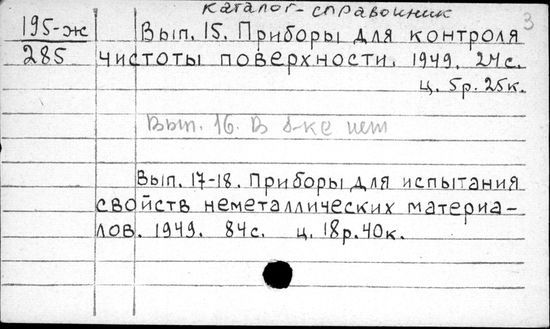 каталог-справочник
3
195-ж
285
Вып. 15. Приборы для контроля
чистоты поверхности. 1949. 24с.
ц. 5р. 25к.
Вып. 16. В б-ке нет
Вып. 17-18. Приборы для испытания
свойств неметаллических материа-
лов. 1949. 84с. ц. 18р. 40к.